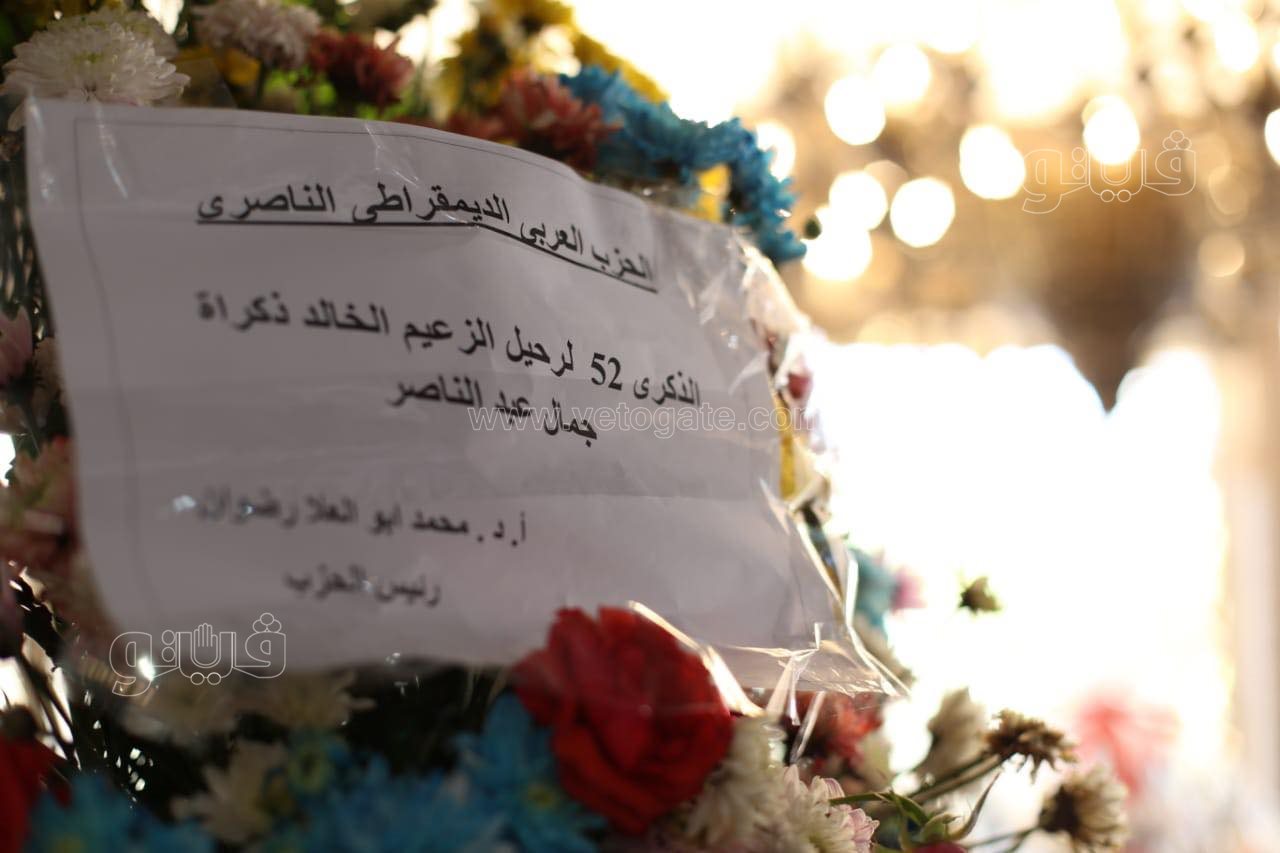 الحزب العربى الديمقراطى الناصرى
الذكرى 52 لرحيل الزعيم الخالد ذكراة
جمال عبد الناصر
أ.د. محمد ابو العلا رضوان
رئيس الحزب
فيتو
www.vetogate.com
فيتو